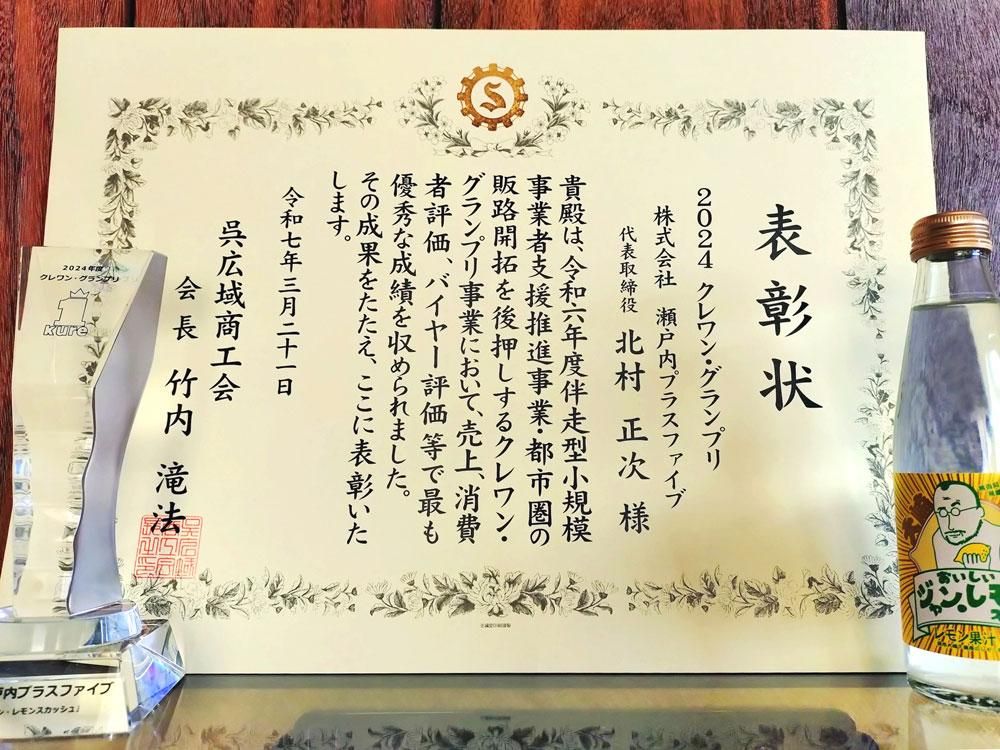 表彰状
2024 クレワン・グランプリ
株式会社 瀬戸内プラスファイブ
代表取締役 北村 正次 様
貴殿は、令和六年度伴走型小規模
事業者支援推進事業・都市圏の
販路開拓を後押しするクレワン・
グランプリ事業において、売上、消費
者評価、バイヤー評価等で最も
優秀な成績を収められました。
その成果をたたえ、ここに表彰いた
します。
令和七年三月二十一日
呉広域商工会
会長 竹内 滝法
2024年度
クレワン・グランプリ
1
kure
戸内プラスファイブ
ン・レモンスカッシュ』
おいしい
ジャン・レモ
レモン果汁